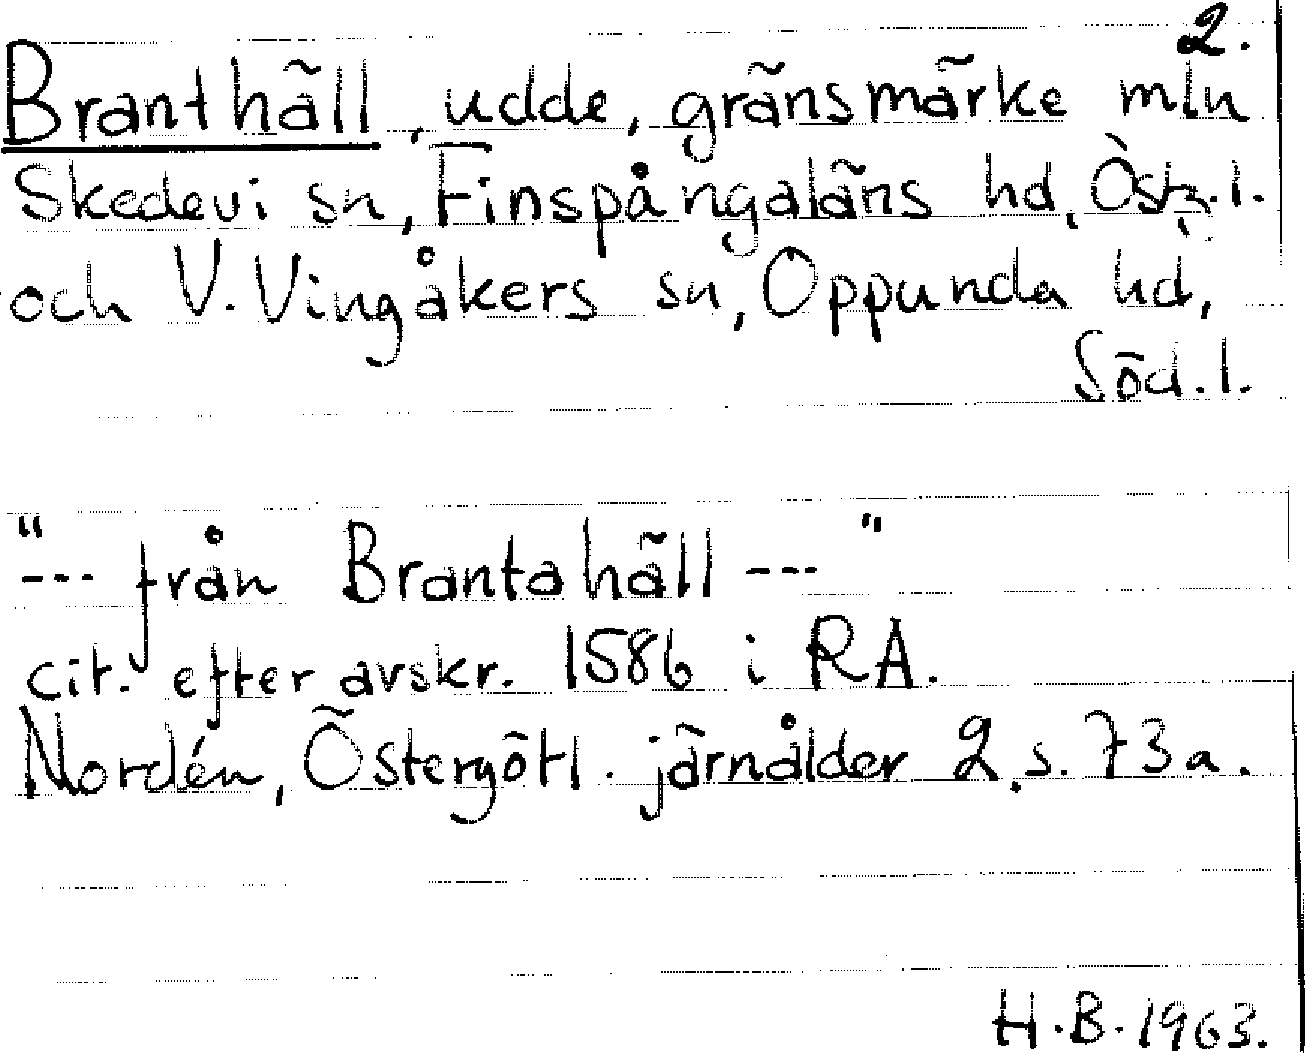 2.
Branthäll, udde, gränsmärke mln
Skedevi sn, Finspångaläns hd, Östg.l.
och V. Vingåkers sn, Oppunda hd,
Söd.l.
"--- från Brantahäll ---"
cit. efter avskr. 1586 i RA.
Nordén, Östergötl. järnålder 2, s. 73a.
H.B. 1963.